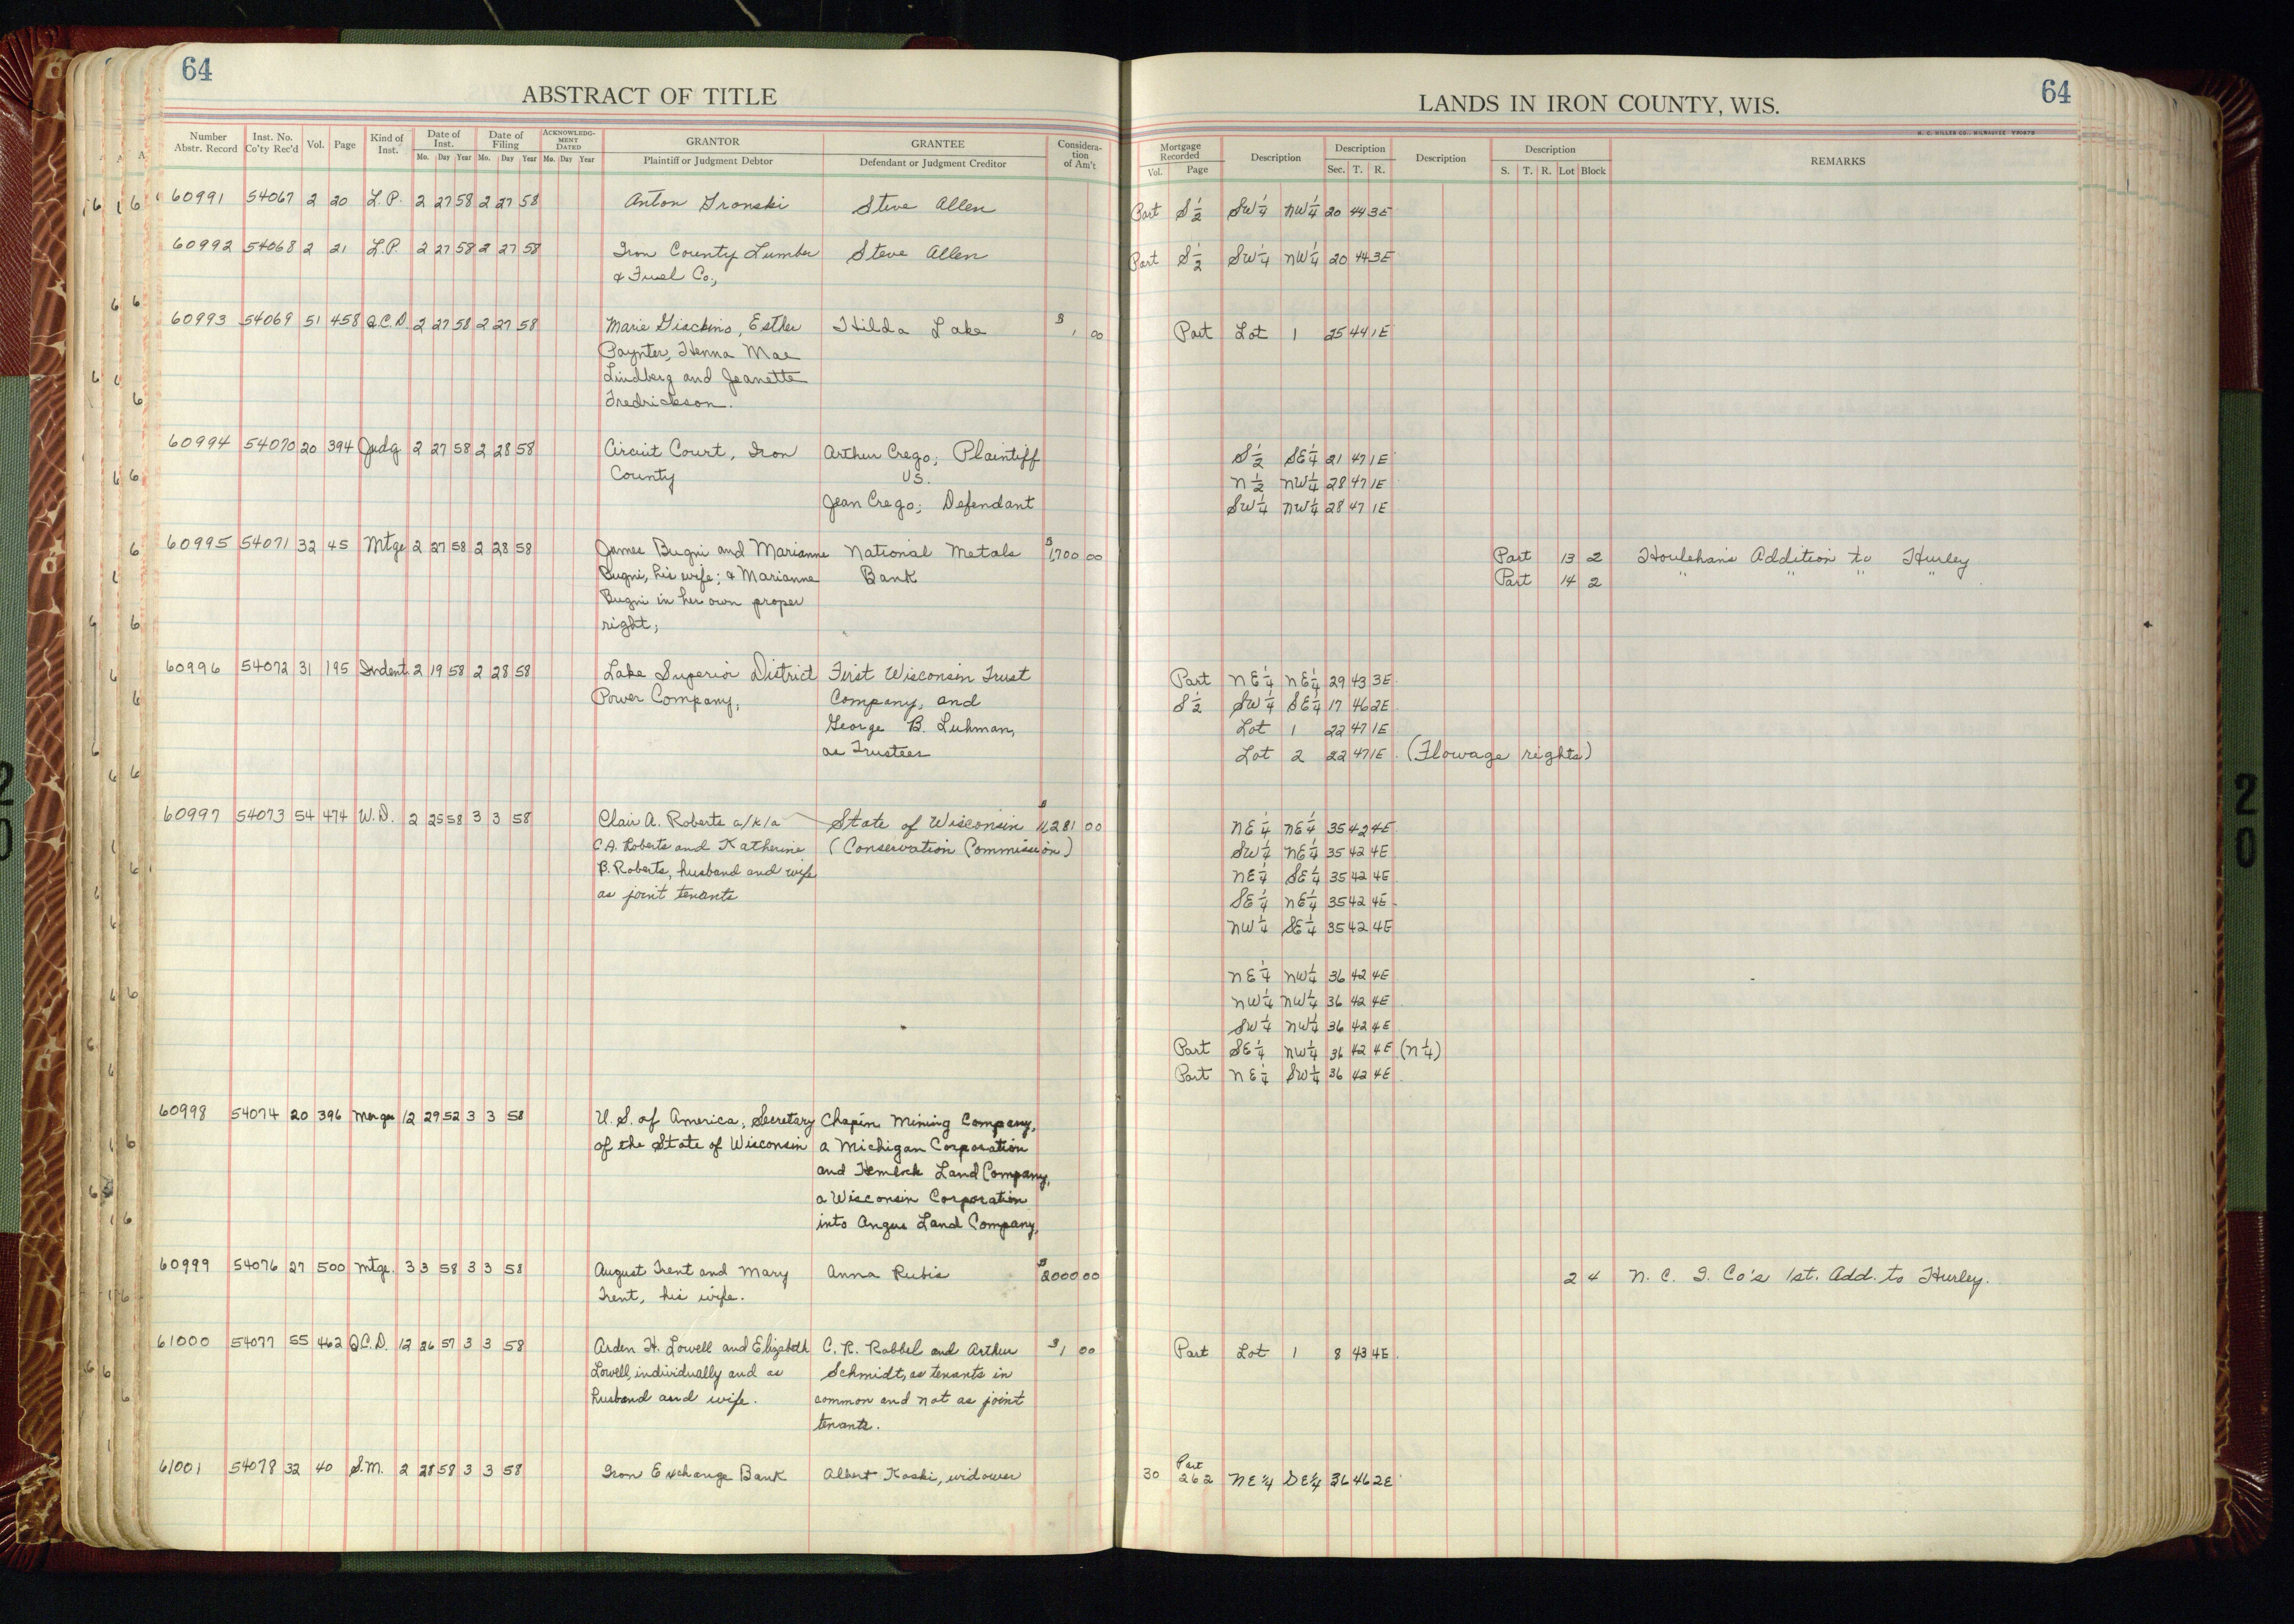 64
ABSTRACT OF TITLE
Number Abstr. Record Inst. No. Co'ty Rec'd Vol. Page Kind of Inst. Date of Inst. Mo. Day Year Date of Filing Mo. Day Year ACKNOWLEDGMENT DATED Mo. Day Year GRANTOR Plaintiff or Judgment Debtor GRANTEE Defendant or Judgment Creditor Consideration of Am't
60991 54067 2 20 L.P. 2 27 58 2 27 58 Anton Gronski Steve Allen
60992 54068 2 21 L.P. 2 27 58 2 27 58 Iron County Lumber Steve Allen
& Fuel Co.,
60993 54069 51 458 Q.C.D. 2 27 58 2 27 58 Marie Giackino, Esther Hilda Lake $1 00
Paynter, Henna Mae
Lindberg and Jeanette
Fredrickson.
60994 54070 20 394 Judg 2 27 58 2 28 58 Circuit Court, Iron Arthur Crego; Plaintiff
County vs.
Jean Crego; Defendant
60995 54071 32 45 Mtge 2 27 58 2 28 58 James Bugni and Marianne National Metals $1,700 00
Bugni, his wife; & Marianne Bank
Bugni in her own proper
right;
60996 54072 31 195 Indent. 2 19 58 2 28 58 Lake Superior District First Wisconsin Trust
Power Company, Company, and
George B. Luhman,
as Trustees
60997 54073 54 474 W.D. 2 25 58 3 3 58 Clair A. Roberts a/k/a State of Wisconsin $11,281 00
C A. Roberts and Katherine (Conservation Commission)
B. Roberts, husband and wife
as joint tenants
60998 54074 20 396 Merger 12 29 52 3 3 58 U.S. of America, Secretary Chapin Mining Company,
of the State of Wisconsin a Michigan Corporation
and Hemlock Land Company,
a Wisconsin Corporation
into Angus Land Company,
60999 54076 27 500 Mtge. 3 3 58 3 3 58 August Trent and Mary Anna Rubis $2000 00
Trent, his wife.
61000 54077 55 462 Q.C.D. 12 26 57 3 3 58 Arden H. Lowell and Elizabeth C. R. Rabbel and Arthur $1 00
Lowell, individually and as Schmidt, as tenants in
husband and wife. common and not as joint
tenants.
61001 54078 32 40 S.M. 2 28 58 3 3 58 Iron Exchange Bank Albert Koski, widower
64
LANDS IN IRON COUNTY, WIS.
H. C. MILLER CO., MILWAUKEE
Mortgage Recorded Vol. Page Description Description Sec. T. R. Description Description S. T. R. Lot Block REMARKS
Part S½ SW¼ NW¼ 20 44 3E
Part S½ SW¼ NW¼ 20 44 3E
Part Lot 1 25 44 1E
S½ SE¼ 21 47 1E
N½ NW¼ 28 47 1E
SW¼ NW¼ 28 47 1E
Part 13 2 Houlehan's Addition to Hurley
Part 14 2 " " " "
Part NE¼ NE¼ 29 43 3E
S½ SW¼ SE¼ 17 46 2E
Lot 1 22 47 1E
Lot 2 22 47 1E. (Flowage rights)
NE¼ NE¼ 35 42 4E
SW¼ NE¼ 35 42 4E
NE¼ SE¼ 35 42 4E
SE¼ NE¼ 35 42 4E
NW¼ SE¼ 35 42 4E
NE¼ NW¼ 36 42 4E
NW¼ NW¼ 36 42 4E
SW¼ NW¼ 36 42 4E
Part SE¼ NW¼ 36 42 4E (N¼)
Part NE¼ SW¼ 36 42 4E
2 4 N. C. I. Co's 1st. Add. to Hurley.
Part Lot 1 8 43 4E.
Part
30 262 NE¼ SE¼ 36 46 2E
20